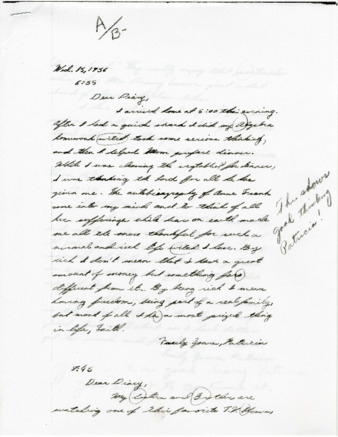 A/B-
Wed. 15, 1956
5:55
Dear Diary,
I arrived home at 5:00 this evening.
After I had a quick snack I did my Algebra
homework which took some serious thinking,
and then I helped Mom prepare dinner.
While I was cleaning the vegetables for dinner,
I was thanking the Lord for all he has
given me. The autobiography of Anne Frank
came into my mind and to think of all
her sufferings while here on earth made
me all the more thankful for such a
normal and rich life which I have. By
rich I don't mean that I have a great
amount of money but something far
different from it. By being rich I mean
having freedom, being part of a real family,
but most of all I do a most prized thing
in life, faith.
Truly Yours, Patricia
This shows
good thinking
Patricia!
Dear Diary,
My sister and Brother are
watching one of their favorite T.V. shows